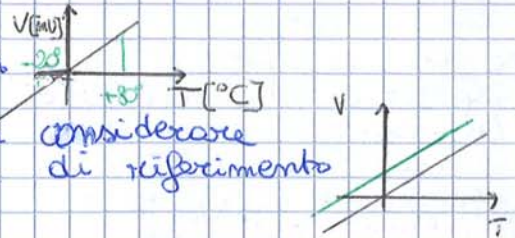 V[mV]
-20°
+80°
T[°C]
considerare
di riferimento
V
T